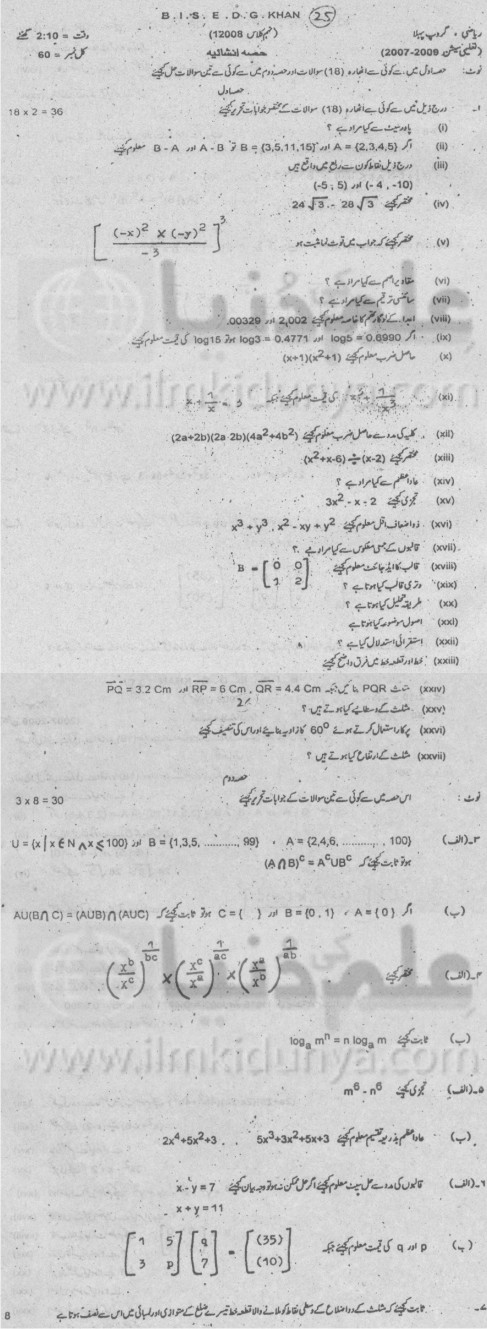 B. I. S. E. D. G. KHAN (25)
ریاضی ، گروپ پہلا (ضمنی کلاس 12008) وقت = 2:10 گھنٹے
(تعلیمی سیشن 2009-2007) حصہ انشائیہ کل نمبر = 60
نوٹ: حصہ اول میں سے کوئی سے اٹھارہ (18) سوالات اور حصہ دوم میں سے کوئی سے تین سوالات حل کیجئے
حصہ اول
درج ذیل میں سے کوئی سے اٹھارہ (18) سوالات کے مختصر جوابات تحریر کیجئے 18 x 2 = 36
(i) پاور سیٹ سے کیا مراد ہے ؟
(ii) اگر A = {2,3,4,5} اور B = {3,5,11,15} تو A - B اور B - A معلوم کیجئے
(iii) درج ذیل نقاط کون سے ربع میں واقع ہیں
(-5 , 5) اور (-4 , -10)
(iv) مختصر کیجئے 24 √3 - 28 √3
(v) مختصر کیجئے کہ جواب میں قوت نما مثبت ہو [ ((-x)² × (-y)²) / -3 ]³
(vi) مقادیر اصم سے کیا مراد ہے ؟
(vii) سائنسی ترقیم سے کیا مراد ہے ؟
(viii) اعداد کے لوگارتھم کا خاصہ معلوم کیجئے 2.002 اور .00329
(ix) اگر log5 = 0.6990 اور log3 = 0.4771 ہو تو log15 کی قیمت معلوم کیجئے
(x) حاصل ضرب معلوم کیجئے (x+1)(x²+1)
(xi) x³ + 1/x³ کی قیمت معلوم کیجئے جبکہ x + 1/x = 3
(xii) کلیہ کی مدد سے حاصل ضرب معلوم کیجئے (2a+2b)(2a-2b)(4a²+4b²)
(xiii) مختصر کیجئے (x²+x-6) ÷ (x-2)
(xiv) عاد اعظم سے کیا مراد ہے ؟
(xv) تجزی کیجئے 3x² - x - 2
(xvi) ذواضعاف اقل معلوم کیجئے x³ + y³ , x² - xy + y²
(xvii) قالبوں کے ضربی معکوس سے کیا مراد ہے ؟
(xviii) قالب کا ایڈجائنٹ معلوم کیجئے B = [0 0; 1 2]
(xix) وتری قالب کیا ہوتا ہے ؟
(xx) طریقہ تحلیل کیا ہوتا ہے ؟
(xxi) اصول موضوعہ کیا ہوتا ہے
(xxii) استقرائی استدلال کیا ہے ؟
(xxiii) خط اور قطعہ خط میں فرق واضح کیجئے
(xxiv) مثلث PQR بنائیں جبکہ QR = 4.4 Cm , RP = 6 Cm اور PQ = 3.2 Cm
(xxv) مثلث کے وسطانیے کیا ہوتے ہیں ؟
(xxvi) پرکار استعمال کرتے ہوئے 60° کا زاویہ بنائیے اور اس کی تنصیف کیجئے
(xxvii) مثلث کے ارتفاع کیا ہوتے ہیں ؟
حصہ دوم
نوٹ : اس حصہ میں سے کوئی سے تین سوالات کے جوابات تحریر کیجئے 3 x 8 = 30
۳۔(الف) A = {2,4,6, .........., 100} ، B = {1,3,5, .........., 99} اور U = {x / x ∈ N ∧ x ⩽ 100}
ہو تو ثابت کیجئے کہ (A∩B)ᶜ = AᶜUBᶜ
(ب) اگر A = {0} ، B = {0,1} اور C = { } ہو تو ثابت کیجئے کہ AU(B∩C) = (AUB)∩(AUC)
۴۔(الف) مختصر کیجئے (xᵇ/xᶜ)^(1/bc) × (xᶜ/xᵃ)^(1/ac) × (xᵃ/xᵇ)^(1/ab)
(ب) ثابت کیجئے logₐ mⁿ = n logₐ m
۵۔(الف) تجزی کیجئے m⁶ - n⁶
(ب) عاد اعظم بذریعہ تقسیم معلوم کیجئے 5x³+3x²+5x+3 , 2x⁴+5x²+3
۶۔(الف) قالبوں کی مدد سے حل سیٹ معلوم کیجئے اگر حل ممکن نہ ہو تو وجہ بیان کیجئے x - y = 7
x + y = 11
(ب) p اور q کی قیمت معلوم کیجئے جبکہ [1 5; 3 p] [q; 7] = [(35); (10)]
۷۔ ثابت کیجئے کہ مثلث کے دو اضلاع کے وسطی نقاط کو ملانے والا قطعہ خط تیسرے ضلع کے متوازی اور لمبائی میں اس سے نصف ہوتا ہے 8
علم کی دنیا
www.ilmkidunya.com
علم کی دنیا
www.ilmkidunya.com